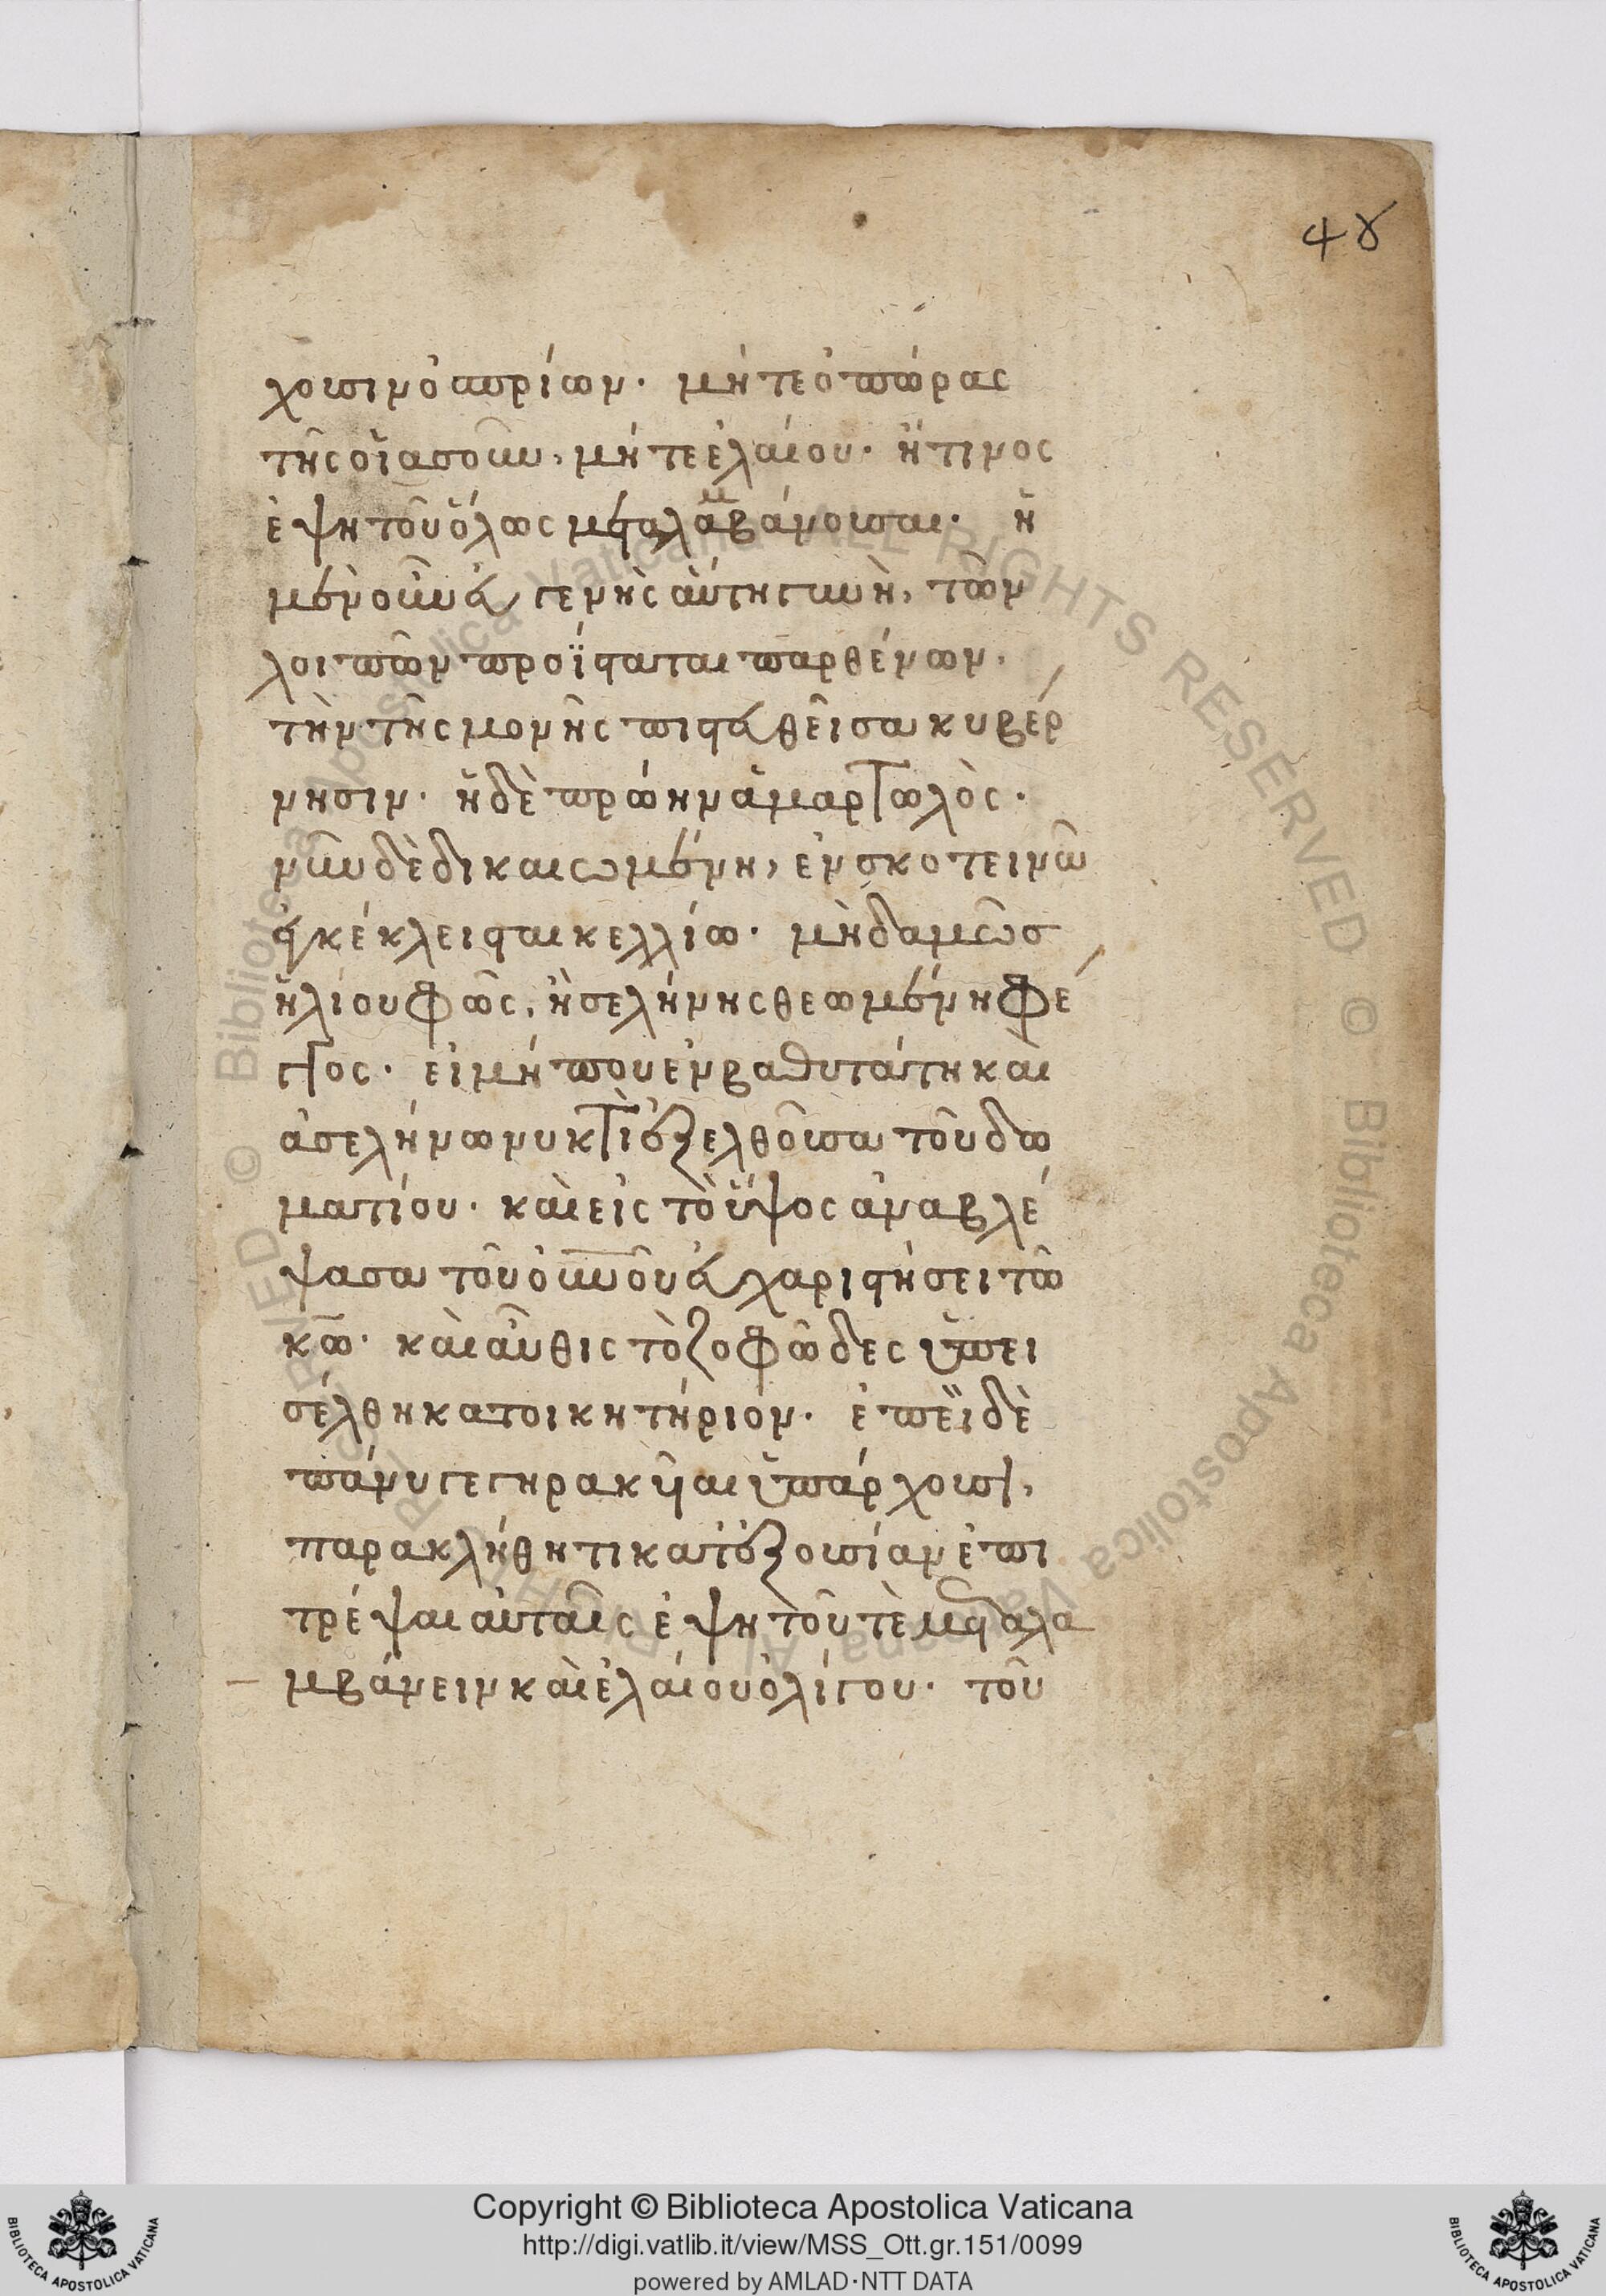 48
χουσιν ὀσπρίων· μήτε ὀπώρας
τῆς οἱασοῦν, μήτε ἐλαίου· ἤ τινος
ἑψητοῦ ὅλως μεταλαμβάνουσαι· ἡ
μὲν οὖν εὐγενὴς αὕτη γυνὴ, τῶν
λοιπῶν προΐσταται παρθένων,
τὴν τῆς μονῆς πιστευθεῖσα κυβέρ
νησιν· ἡ δὲ πρώην ἁμαρτωλὸς·
νῦν δὲ δικαιωμένη, ἐν σκοτεινῶ
ἐγκέκλεισται κελλίω· μηδαμῶσ
ἡλίου φῶς, ἢ σελήνης θεωμένη φέ
γγος· εἰ μή που ἐν βαθυτάτη καὶ
ἀσελήνω νυκτὶ ἐξελθοῦσα τοῦ δω
ματίου· καὶ εἰς τὸ ὕψος ἀναβλέ
ψασα τοῦ οὐνοῦ εὐχαριστήσει τῶ
κω· καὶ αὖθις τὸ ζοφῶδες ὑπει
σέλθη κατοικητήριον· ἐπεὶ δὲ
πάνυ γεγηρακυῖαι ὑπάρχουσι,
παρακλήθητι κατ' ἐξουσίαν ἐπι
τρέψαι αὐταῖς ἑψητοῦ τὲ μεταλα
μβάνειν καὶ ἐλαίου ὀλίγου· τοῦ
Copyright © Biblioteca Apostolica Vaticana
http://digi.vatlib.it/view/MSS_Ott.gr.151/0099
powered by AMLAD·NTT DATA
BIBLIOTECA APOSTOLICA VATICANA
BIBLIOTECA APOSTOLICA VATICANA